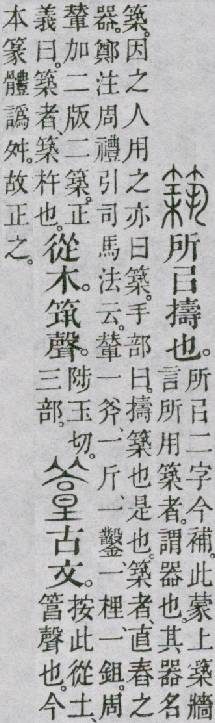 築所㠯擣也。所㠯二字今補。此蒙上築牆言所用築者。謂器也。其器名
築。因之人用之亦曰築。手部曰。擣、築也。是也。築者、直舂之器。鄭注周禮引司馬法云。輂一斧、一斤、一鑿、一梩、一鉏。周
輂加二版二築。正義曰。築者、築杵也。從木。筑聲。陟玉切。三部。古文。按此從土、䈞聲也。今
本篆體譌舛。故正之。